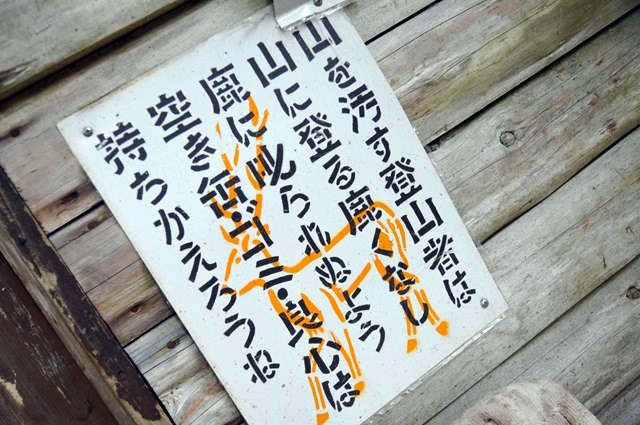 山を汚す登山者は
山に登る鹿くなし
鹿に叱られぬよう
空き缶・ゴミ・良心は
持ちかえろうね